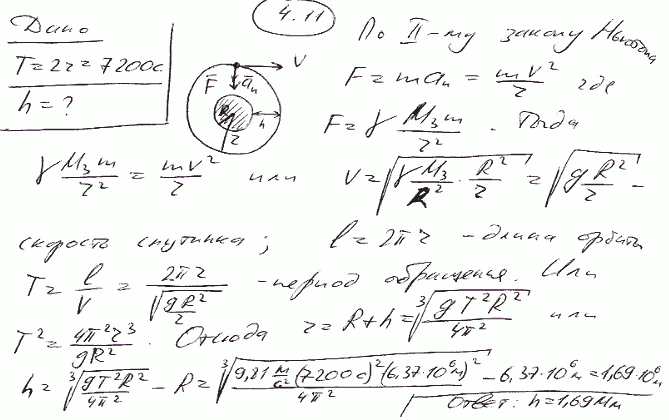 4.11
Дано
T = 2г = 7200с.
h = ?
V
F̄ ā_n
R h
r
По II-му закону Ньютона
F = ma_n = mV²/r где
F = γ M₃m/r². Тогда
γ M₃m/r² = mV²/r или V = √(γ M₃/R² · R²/r) = √(gR²/r) -
скорость спутника; l = 2πr - длина орбиты
T = l/V = 2πr/√(gR²/r) - период обращения. Или
T² = 4π²r³/gR². Отсюда r = R+h = ³√(gT²R²/4π²) или
h = ³√(gT²R²/4π²) - R = ³√(9,81 м/с² (7200с)² (6,37·10⁶м)²/4π²) - 6,37·10⁶м = 1,69·10⁶м
Ответ: h = 1,69Мм